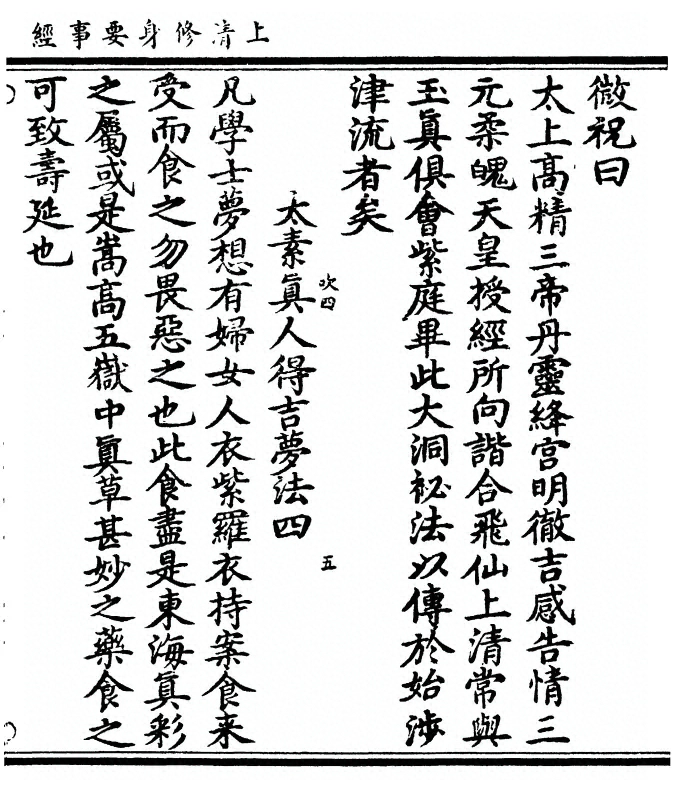 上清修身要事經
微祝曰
太上高精三帝丹靈絳宮明徹吉感告情三
元柔魄天皇授經所向諧合飛仙上清常與
玉眞俱會紫庭畢此大洞祕法以傳於始涉
津流者矣
吹四
五
太素眞人得吉夢法四
凡學士夢想有婦女人衣紫羅衣持案食来
受而食之勿畏惡之也此食盡是東海眞彩
之屬或是嵩高五嶽中眞草甚妙之藥食之
可致壽延也